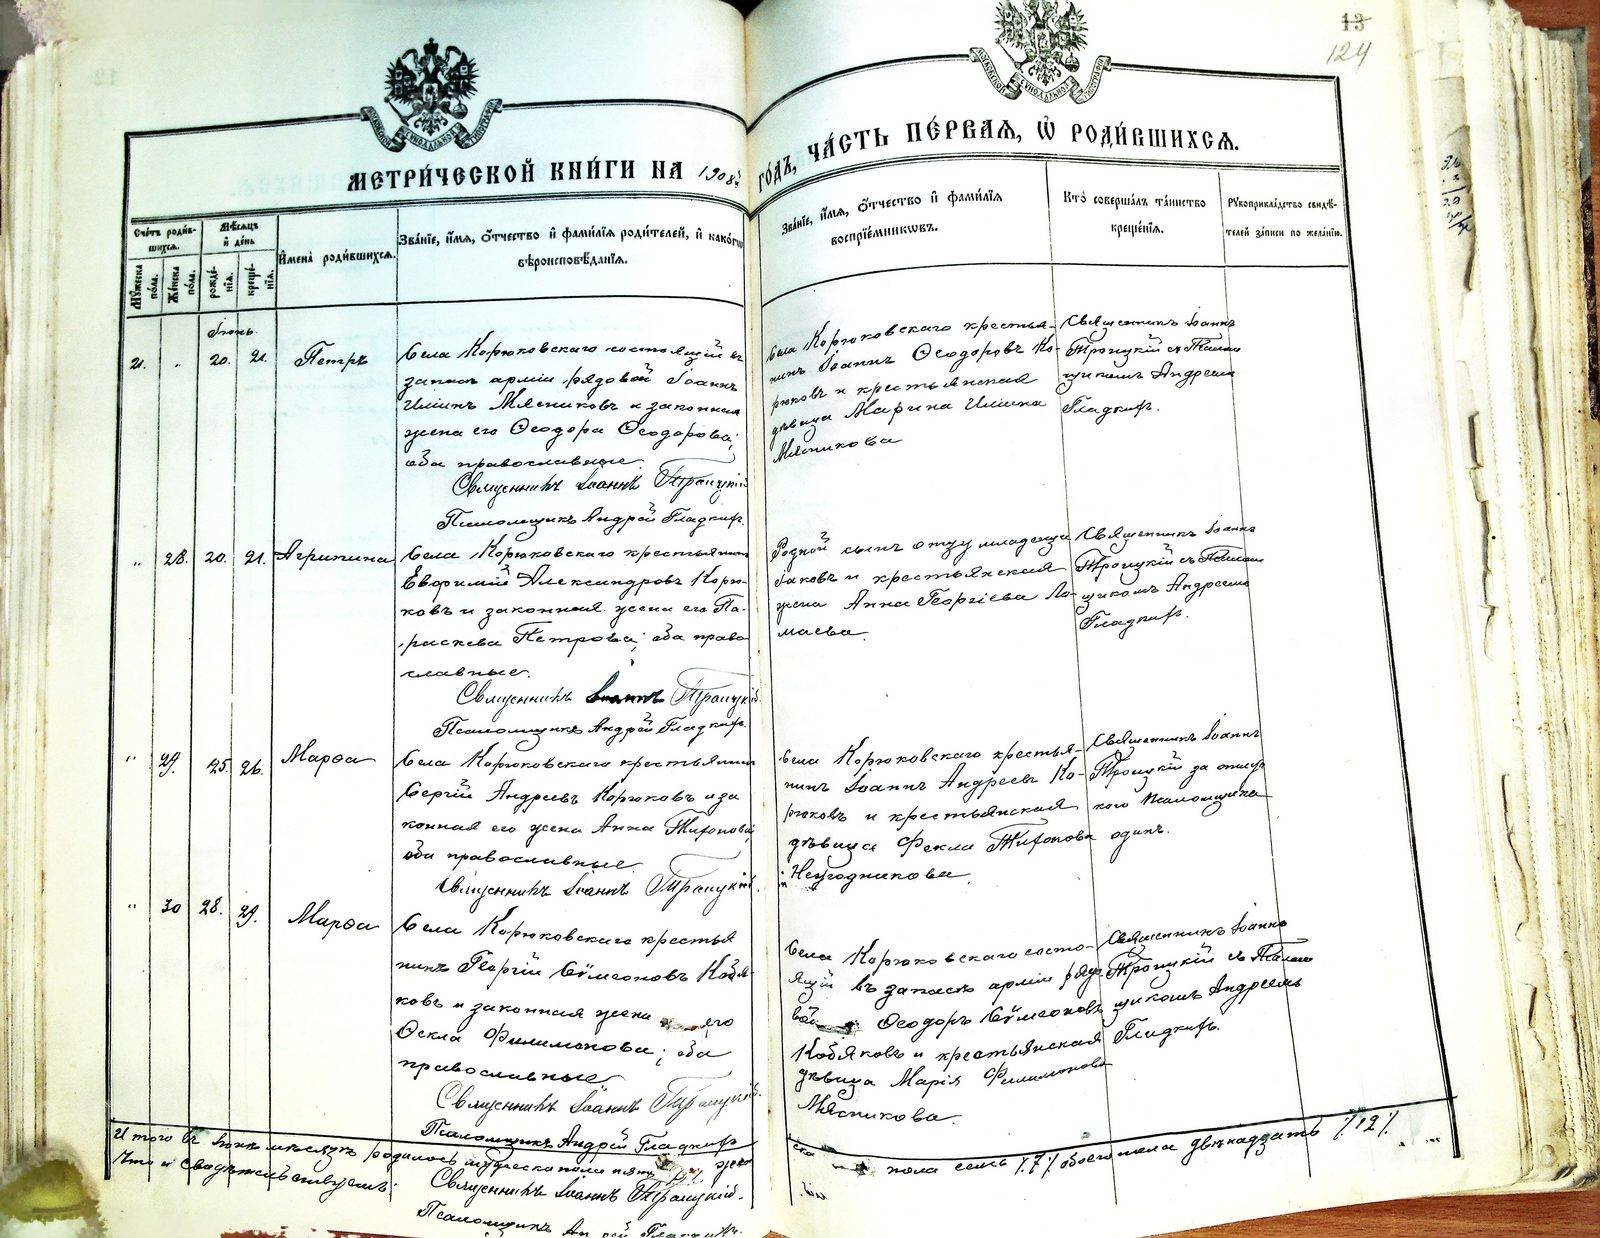 13
124
МОСКОВСКОЙ СѴНОДАЛЬНОЙ ТИПОГРАФІИ
МОСКОВСКОЙ СѴНОДАЛЬНОЙ ТИПОГРАФІИ
МЕТРИ́ЧЕСКОЙ КНИ́ГИ НА 1908й
ГО́ДЪ, ЧА́СТЬ ПЕ́РВАѦ, Ѡ҆ РОДИ́ВШИХСѦ.
Сче́тъ роди́в-
шихсѧ.
Мꙋ́жеска по́ла.
Же́нска по́ла.
Мѣ́сѧцъ
и҆ де́нь
рожде́-
нїѧ.
креще́-
нїѧ.
И҆мена̀ роди́вшихсѧ.
Зва́нїе, и҆́мѧ, ѻ҆́тчество и҆ фами́лїѧ роди́телей, и҆ како́гѡ
вѣроисповѣ́данїѧ.
Зва́нїе, и҆́мѧ, ѻ҆́тчество и҆ фами́лїѧ
воспрїе́мникѡвъ.
Кто̀ соверша́лъ та́инство
креще́нїѧ.
Рꙋкоприкла́дство свидѣ́-
телей за́писи по жела́нїю.
Іюнь.
21. „ 20. 21. Петръ
Села Корюковскаго состоящій въ
запасѣ арміи рядовой Іоаннъ
Илiинъ Мясниковъ и законная
жена его Ѳеодора Ѳеодорова;
оба православные.
Священникъ Іоаннъ Троицкій
Псаломщикъ Андрей Гладкихъ.
Села Корюковскаго крестья-
нинъ Іоаннъ Ѳеодоровъ Ко-
рюковъ и крестьянская
дѣвица Марина Илiина
Мясникова
Священникъ Іоаннъ
Троицкій съ Псалом
щикомъ Андреемъ
Гладкихъ.
„ 28. 20. 21. Агрипина
Села Корюковскаго крестьянинъ
Евѳимій Александровъ Корю-
ковъ и законная жена его Па-
раскева Петрова; оба право
славные.
Священникъ Іоаннъ Троицкій
Псаломщикъ Андрей Гладкихъ
Родной сынъ отцу младенца
и крестьянская
жена Анна Георгіева Ло-
маева.
Священникъ Іоаннъ
Троицкій съ Псалом
щикомъ Андреемъ
Гладкихъ.
„ 29. 25. 26. Марѳа
Села Корюковскаго крестьянинъ
Сергій Андреевъ Корюковъ и за
конная его жена Анна Тихонова;
оба православные
Священникъ Іоаннъ Троицкій.
Села Корюковскаго крестья-
нинъ Іоаннъ Андреевъ Ко-
рюковъ и крестьянская
дѣвица Фекла Тихонова
Неугодникова.
Священникъ Іоаннъ
Троицкій за
Псаломщика
одинъ.
„ 30 28. 29. Марѳа
Села Корюковскаго крестья
нинъ Георгій Сѵмеоновъ Кобя-
ковъ и законная жена его
Ѳекла Филимонова; оба
православные
Священникъ Іоаннъ Троицкій.
Псаломщикъ Андрей Гладкихъ
Села Корюковскаго состо-
ящій въ запасѣ арміи рядо
вой Ѳеодоръ Сѵмеоновъ
Кобяковъ и крестьянская
дѣвица Марія Филимонова
Мясникова.
Священникъ Іоаннъ
Троицкій съ Псалом
щикомъ Андреемъ
Гладкихъ.
Итого въ Іюнѣ мѣсяцѣ родилось мужеска пола пять жен
ска пола семь /7/ обоего пола двѣнадцать /12/.
Что и свидѣтельствуемъ:
Священникъ Іоаннъ Троицкій.
Псаломщикъ Андрей Гладкихъ.